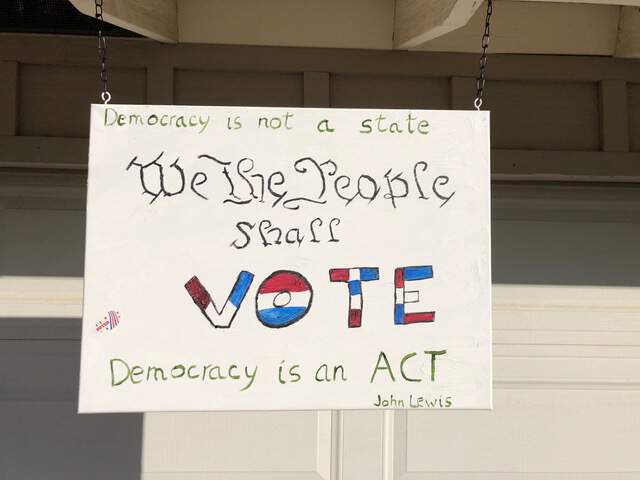 Democracy is not a state
We The People
shall
VOTE
Democracy is an ACT
John Lewis